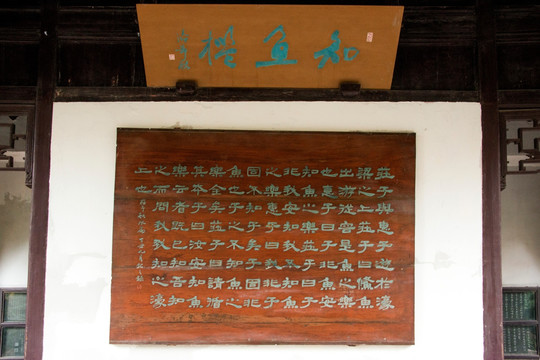 知魚檻
莊子與惠子遊於濠
梁之上莊子曰儵魚
出游從容是魚之樂
也惠子曰子非魚安
知魚之樂莊子曰子
非我安知我不知魚
之樂惠子曰我非子
固不知子矣子固非
魚也子之不知魚之
樂全矣莊子曰請循
其本子曰汝安知魚
樂云者既已知吾知
之而問我我知之濠
上也